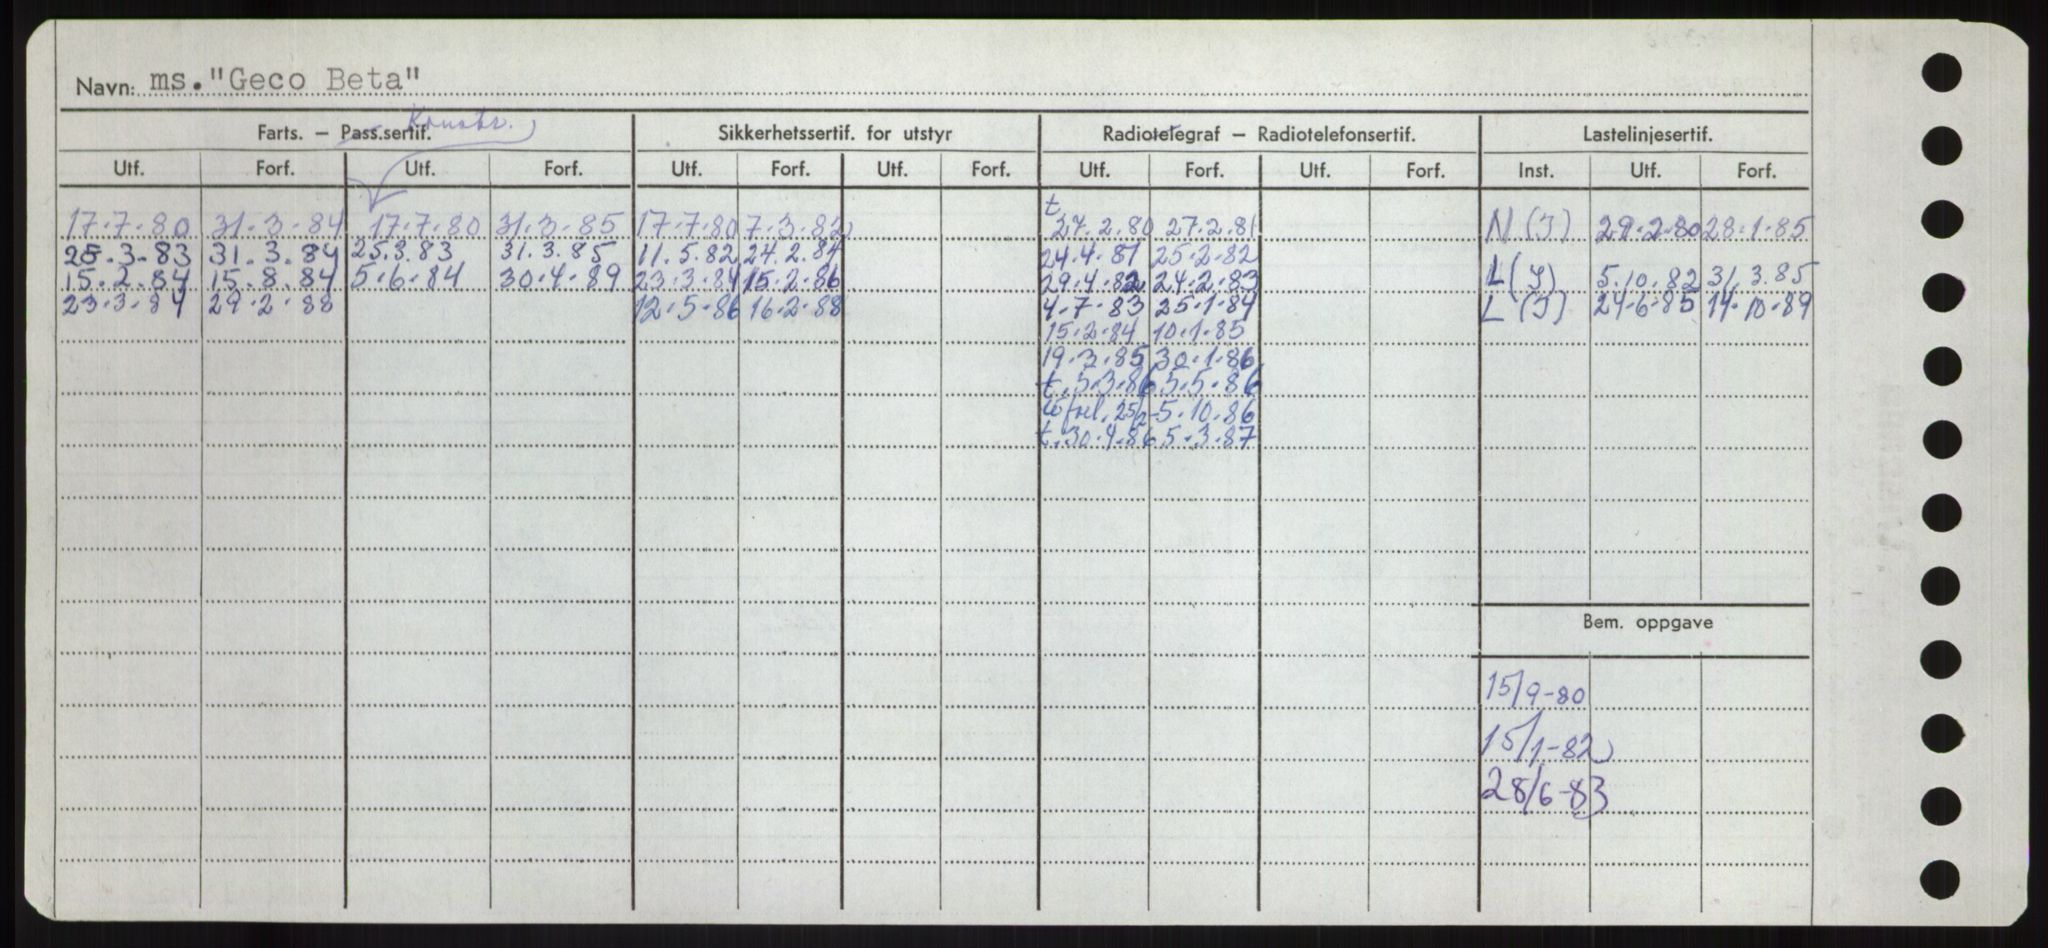 Navn: ms. "Geco Beta"
Konstr.
Farts. – Pass.sertif. Sikkerhetssertif. for utstyr Radiotelegraf – Radiotelefonsertif. Lastelinjesertif.
Utf. Forf. Utf. Forf. Utf. Forf. Utf. Forf. Utf. Forf. Utf. Forf. Inst. Utf. Forf.
t
17.7.80 31.3.84 17.7.80 31.3.85 17.7.80 7.3.82 27.2.80 27.2.81 N (I) 29.2.80 28.1.85
25.3.83 31.3.84 25.3.83 31.3.85 11.5.82 24.2.84 24.4.81 25.2.82
15.2.84 15.8.84 5.6.84 30.4.89 23.3.84 15.2.86 29.4.82 24.2.83 L (I) 5.10.82 31.3.85
23.3.84 29.2.88 12.5.86 16.2.88 4.7.83 25.1.84 L (I) 24.6.85 14.10.89
15.2.84 10.1.85
19.3.85 30.1.86
t. 5.3.86 5.5.86
25/2- 5.10.86
t. 30.4.86 5.3.87
Bem. oppgave
15/9-80
15/1-82
28/6-83